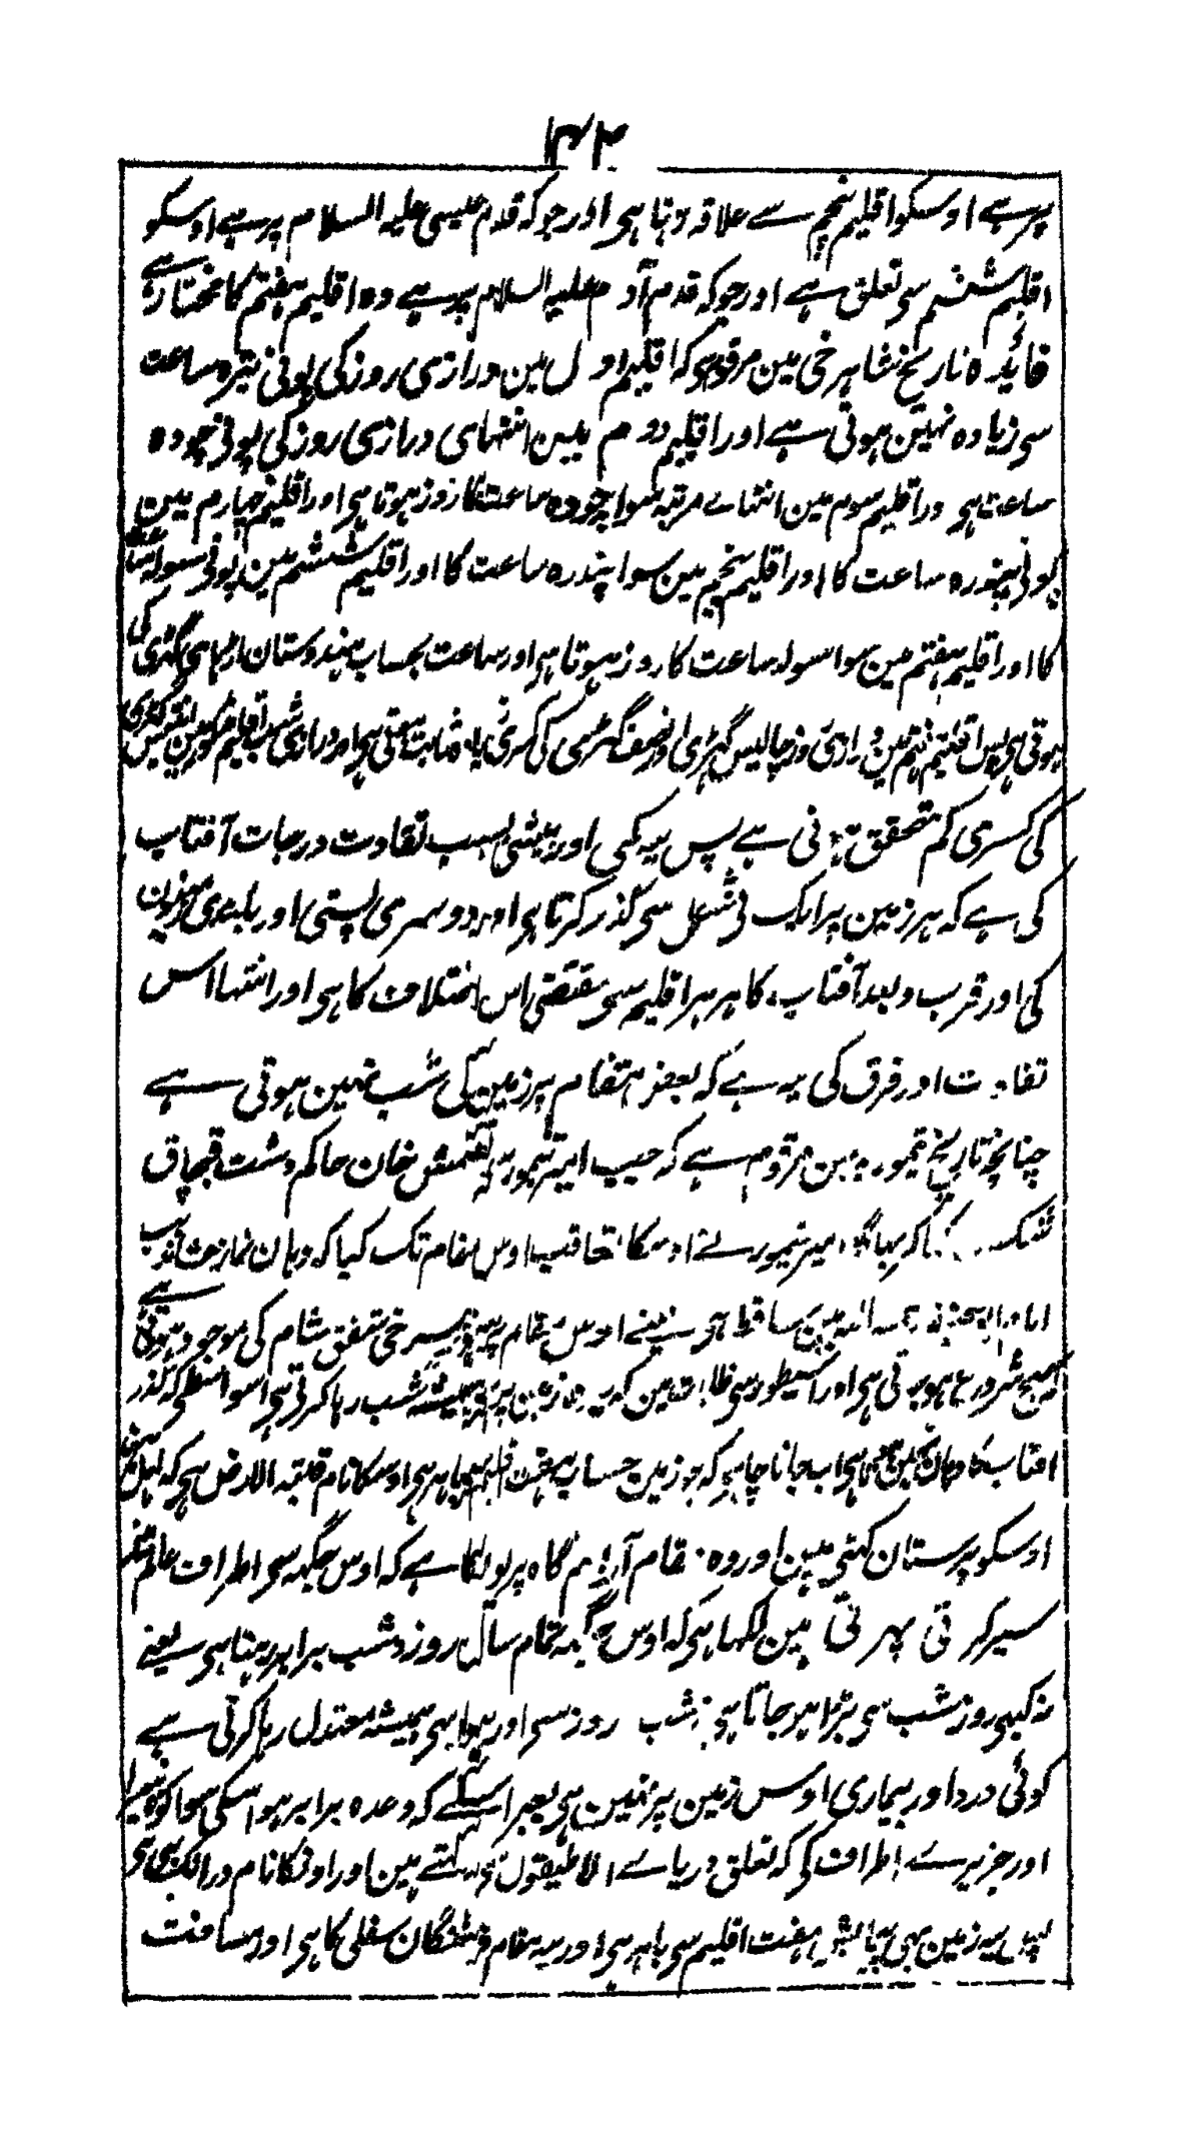 ۱۴۲
پر ہے اوسکو اقلیم پنجم سے علاقہ رہتا ہی اور جو کہ قدم عیسی علیہ السلام پر ہے اوسکو
اقلیم ششم سی تعلق ہے اور جو کہ قدم آدم علیہ السلام پر ہے وہ اقلیم ہفتم کا مختار ہے
فائدہ تاریخ شاہرخی مین مرقوم ہی کہ اقلیم اول مین درازی روز کی پونی تیرہ ساعت
سی زیادہ نہین ہوتی ہے اور اقلیم دوم مین انتہای درازی روز کی پونی چودہ
ساعت ہی اور اقلیم سوم مین انتہاے مرتبہ سوا چودہ ساعت کا روز ہوتا ہی اور اقلیم چہارم مین
پونی پندرہ ساعت کا اور اقلیم پنجم مین سوا پندرہ ساعت کا اور اقلیم ششم مین پونی سولہ ساعت
کا اور اقلیم ہفتم مین سوا سولہ ساعت کا روز ہوتا ہی اور ساعت بحساب ہندوستان اڑہای گہڑی کی
ہوتی ہی پس اقلیم ہفتم مین درازی روز چالیس گہڑی اور نصف گہڑی کی کسری زیادہ ثابت ہوتی ہی اور درازی شب اقلیم مذکور مین انیس گہڑی
کی کسری کم متحقق ہوتی ہے پس یہ کمی اور بیشی بسبب تفاوت درجات آفتاب
کی ہے کہ ہر زمین پر ایک نی شکل سی گذر کرتا ہی اور دوسری پستی اور بلندی زمین
کی اور قرب و بعد آفتاب کا ہر ہر اقلیم سی مقتضی اس اختلاف کا ہی اور انتہا اس
تفاوت اور فرق کی یہ ہے کہ بعض مقام پر زمین کی شب نہین ہوتی ہے
چنانچہ تاریخ تیموریہ مین مرقوم ہے کہ جب امیر تیمور نے تقتمش خان حاکم دشت قبچاق
شکست کہا کر بہاگا امیر تیمور نے اوسکا تعاقب اوس مقام تک کیا کہ وہان نماز عشا مذہب
امام ابو حنیفہ رحمہ اللہ مین ساقط ہے یعنے اوس مقام پر ہنوز سرخی شفق شام کی موجود ہوتی ہے
کہ صبح شروع ہو جاتی ہی اور اسیطور سی ظلمات مین کہ یہ زمین پر ہمیشہ شب رہا کرتی ہی اسواسطے کہ گذر
آفتاب کا وہان نہین ہوتا ہی اب جانا چاہیے کہ جو زمین حساب ہفت اقلیم سی باہر ہی اوسکا نام قبتہ الارض ہی کہ اہل ہند
اوسکو پرستان کہتی ہین اور وہ مقام آرام گاہ پریونکا ہے کہ اوس جگہہ سی اطراف عالم مین
سیر کرتی پہرتی ہین لکہا ہی کہ اوس جگہہ تمام سال روز و شب برابر رہتا ہی یعنے
نہ کبہی روز شب سی بڑا ہو جاتا ہی نہ شب روز سی اور ہوا بہی ہمیشہ معتدل رہا کرتی ہے
کوئی درد اور بیماری اوس زمین پر نہین ہی بجز اسکے کہ وعدہ برابر ہو اسکی سوا کوہ سرانديب
اور جزیرے اطراف کی کہ تعلق دریاے الاطیقون کہتے ہین اور اونکا نام در الگ ہی
پس یہ زمین بہی پیمایش ہفت اقلیم سی باہر ہی اور یہ مقام فرشتگان سفلی کا ہی اور مسافت